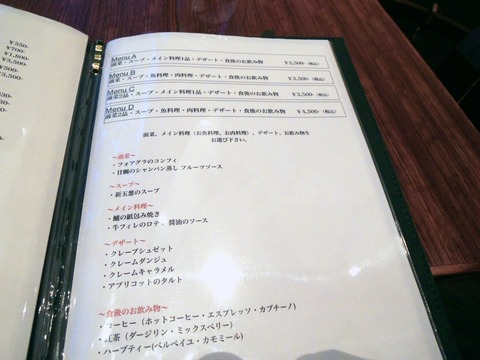 ¥550-
¥700-
¥1,800-
¥3,500-
¥500-
¥3,500-
Menu A
前菜・スープ・メイン料理1品・デザート・食後のお飲み物 ¥2,500-(税込)
Menu B
前菜・スープ・魚料理・肉料理・デザート・食後のお飲み物 ¥3,500-(税込)
Menu C
前菜2品・スープ・メイン料理1品・デザート・食後のお飲み物 ¥3,500-(税込)
Menu D
前菜2品・スープ・魚料理・肉料理・デザート・食後のお飲み物 ¥4,500-(税込)
前菜、メイン料理（お魚料理、お肉料理）、デザート、お飲み物を
お選び下さい。
～前菜～
・フォアグラのコンフィ
・甘鯛のシャンパン蒸し フルーツソース
～スープ～
・新玉葱のスープ
～メイン料理～
・鱸の紙包み焼き
・牛フィレのロティ 醤油のソース
～デザート～
・クレープシュゼット
・クレームダンジュ
・クレームキャラメル
・アプリコットのタルト
～食後のお飲み物～
・コーヒー（ホットコーヒー・エスプレッソ・カプチーノ）
・紅茶（ダージリン・ミックスベリー）
・ハーブティー(ベルベイユ・カモミール)